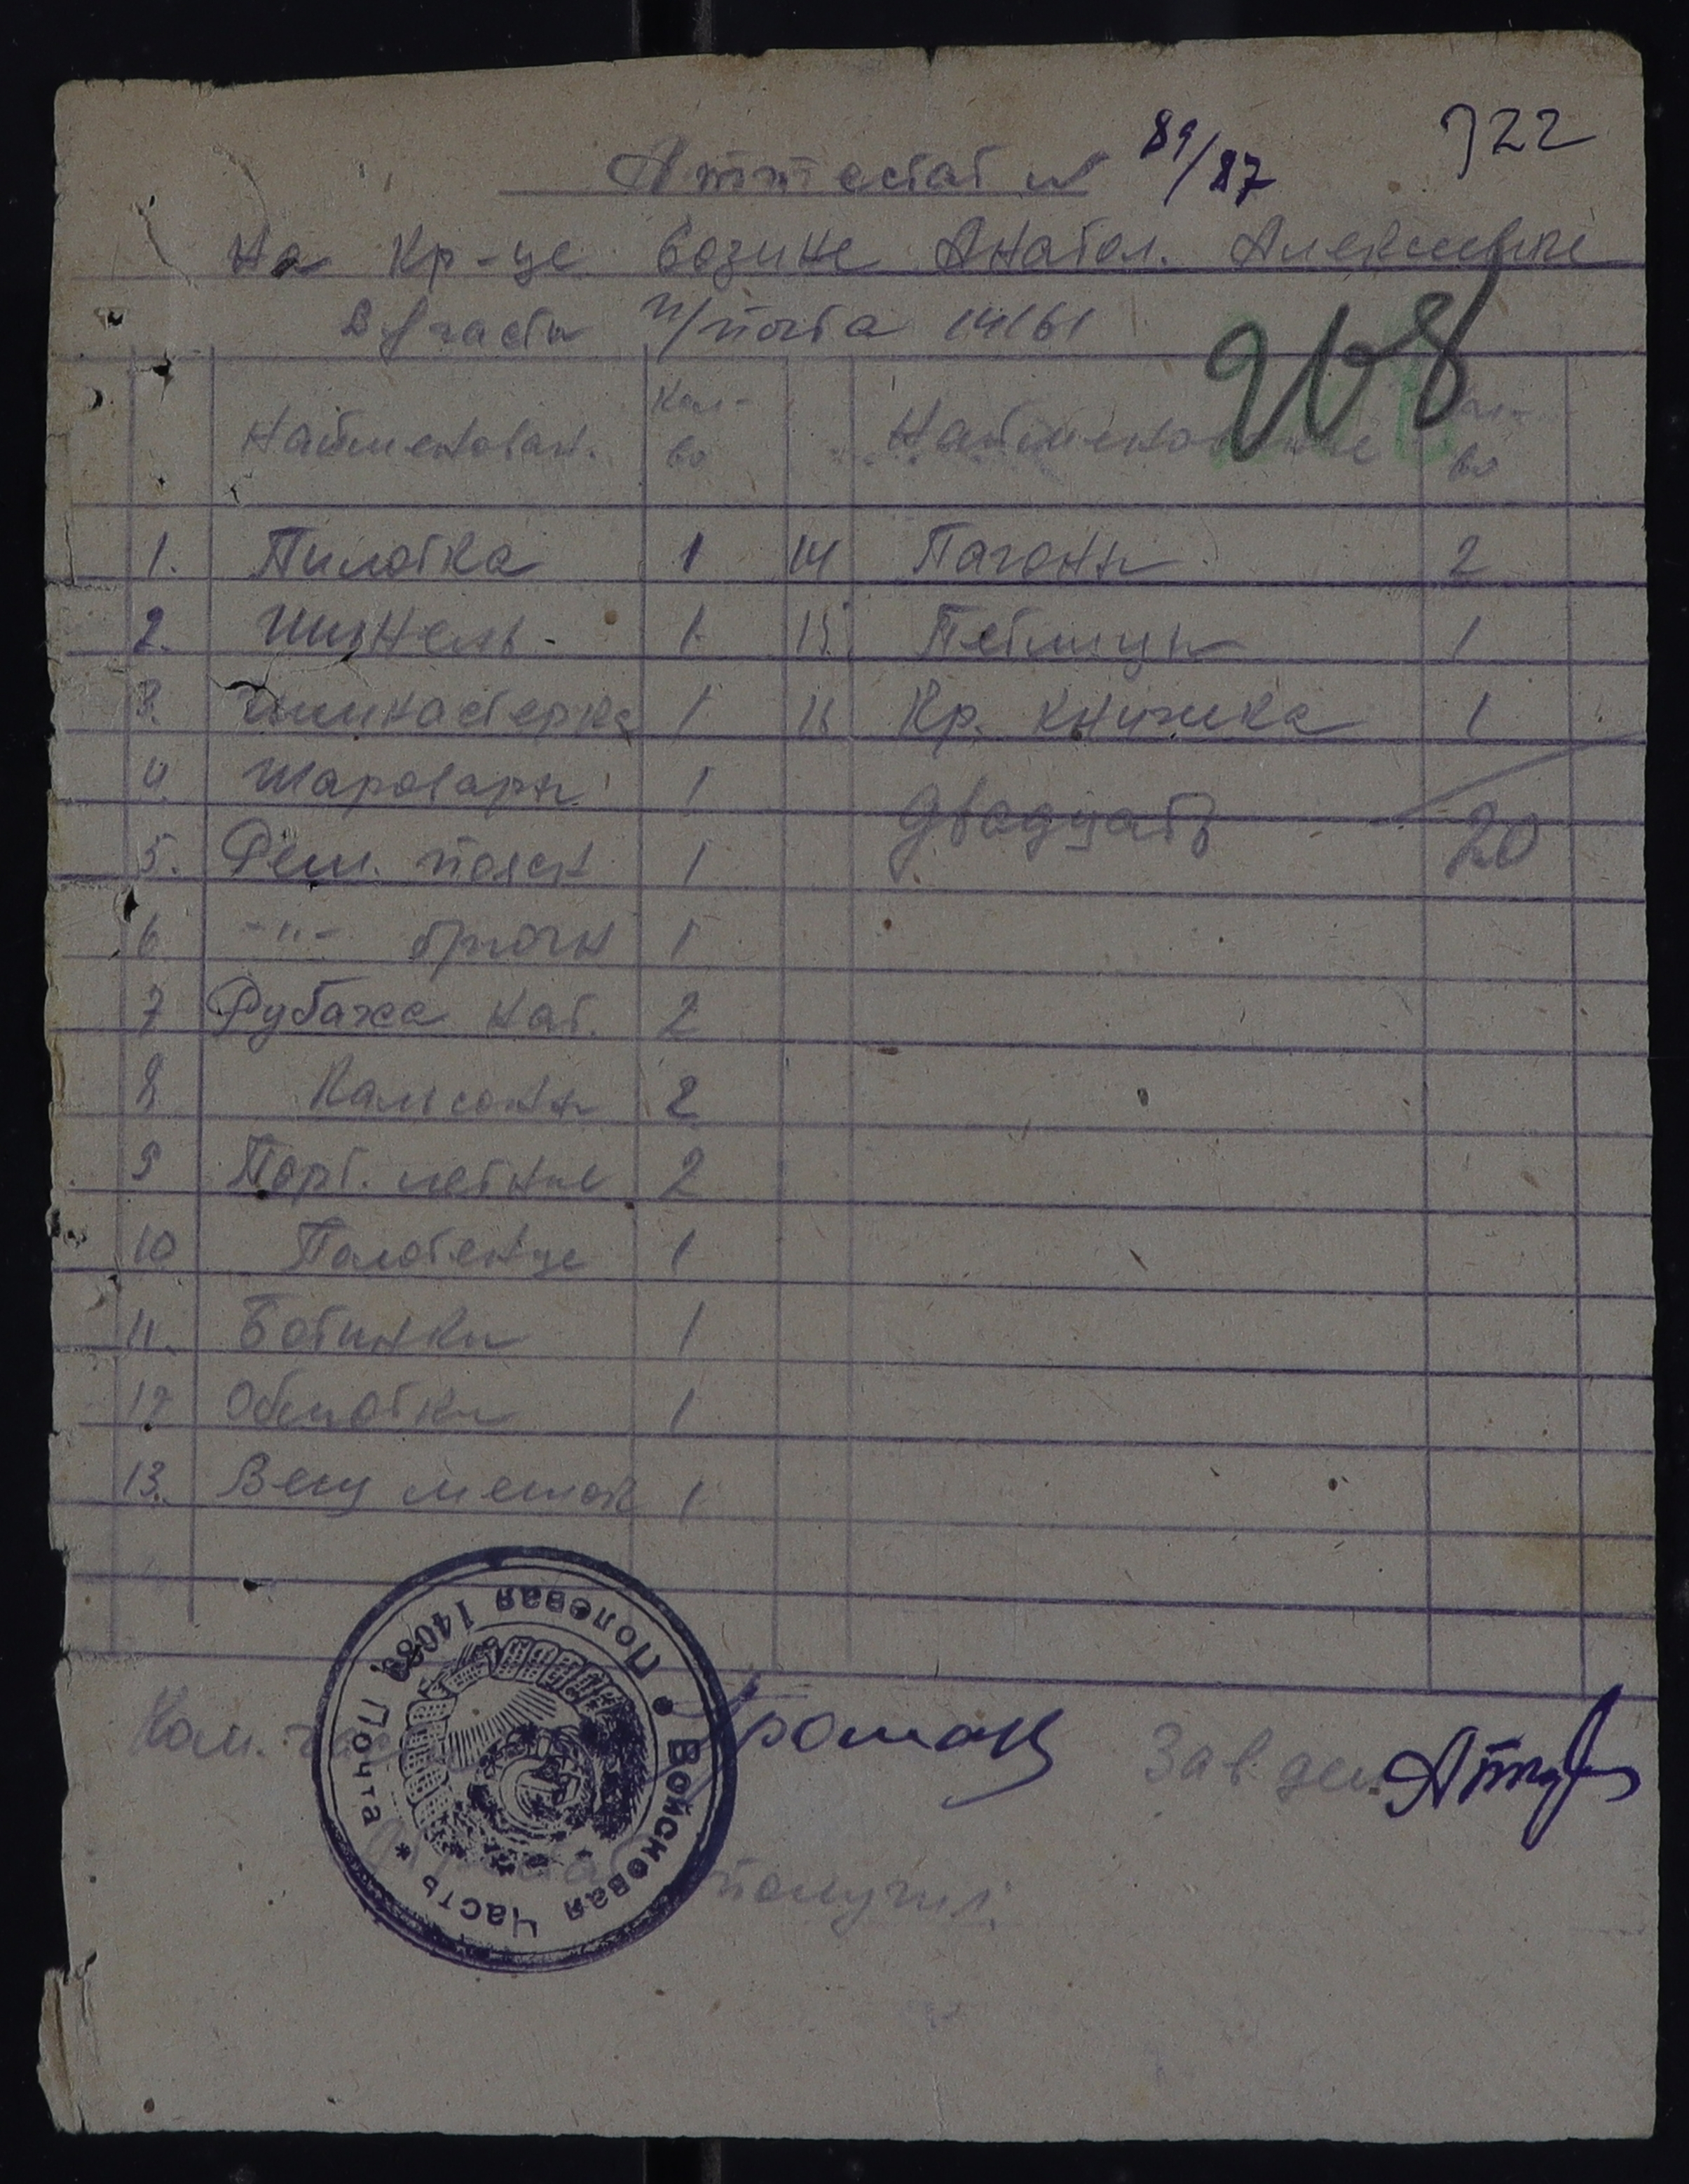 722
Аттестат № 89/87
На Кр-це Возине Анатол. Алексеевиче
В/части п/почта 14161
208
Найменован. Кол-во Найменование Кол-во
1. Пилотка 1 14 Пагоны 2
2. Шинель 1 15. Петлицы 1
3. Гимнастерка 1 16 Кр. книжка 1
4. Шаровары 1 Двадцать 20
5. Рем. поясн 1
6 -"- брючн 1
7 Рубаха нат. 2
8 Кальсоны 2
9 Порт. летние 2
10 Полотенце 1
11. Ботинки 1
12 Обмотки 1
13. Вещ мешок 1
Ком. части Зав дел.
получил.
Войсковая Часть * Полевая Почта 14083